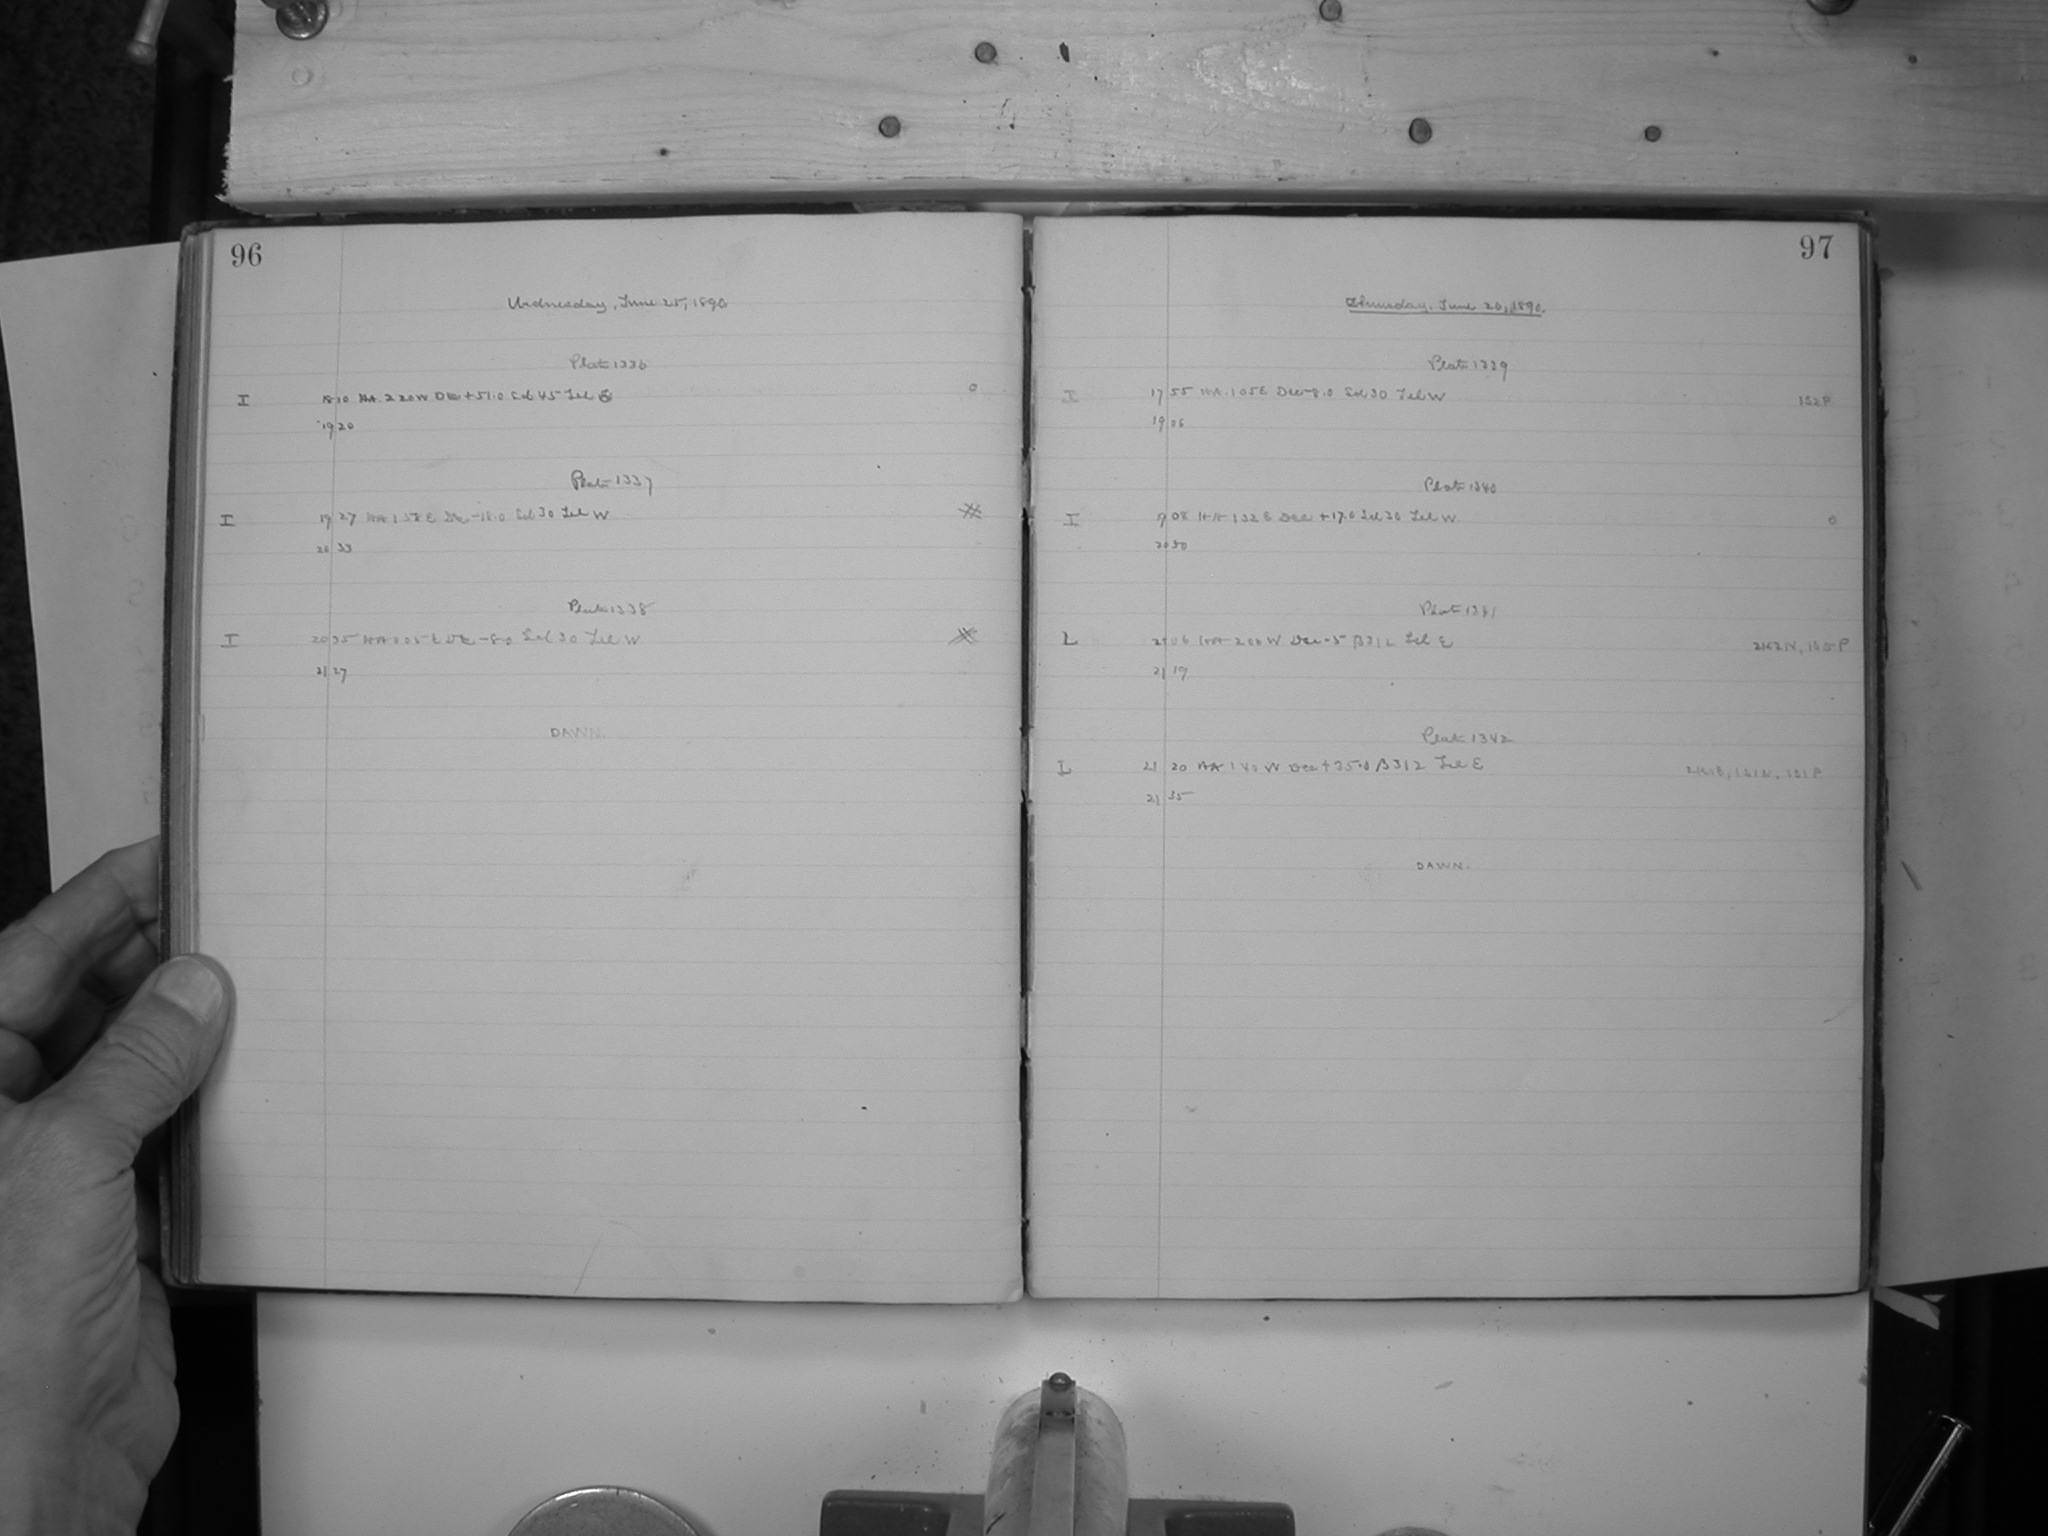 96
Wednesday, June 25, 1890.
Plate 1336
I 18 10 HA. 2 20 W Dec +51.0 Sed 45 Tel E
19 20
Plate 1337
I 19 27 HA 1 58 E Dec -18.0 Sed 30 Tel W
20 33
Plate 1338
I 20 35 HA 0 05 E Dec -8.0 Sed 30 Tel W
21 27
DAWN.
97
Thursday, June 26, 1890.
Plate 1339
I 17 55 HA. 1 05 E Dec -8.0 Sed 30 Tel W 132P
19 06
Plate 1340
I 19 08 HA 1 32 E Dec +17.0 Sed 30 Tel W 0
20 50
Plate 1341
L 21 06 HA 2 00 W Dec -5 B312 Tel E
21 19
Plate 1342
L 21 20 HA 1 40 W Dec +35.0 B312 Tel E
21 35
DAWN.